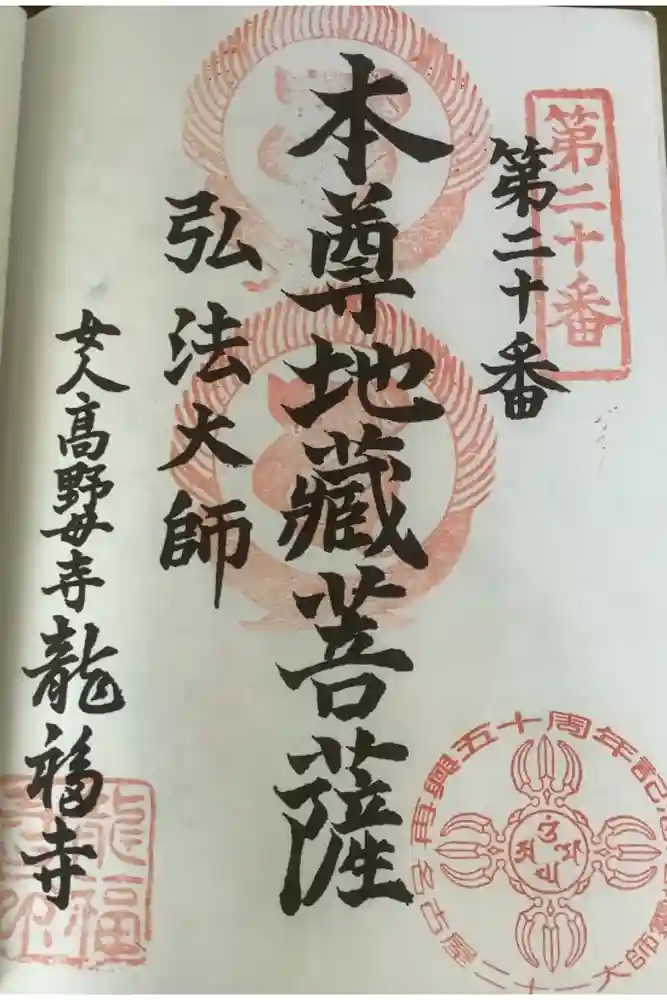 第二十番
第二十番
本尊地藏菩薩
弘法大師
女人高野母寺龍福寺
再興五十周年記
名古屋二十一大師
龍福